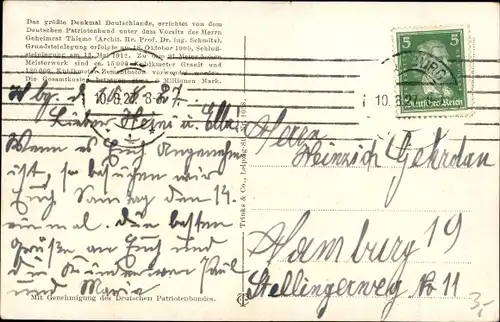 Das größte Denkmal Deutschlands, errichtet von dem
Deutschen Patriotenbund unter dem Vorsitz des Herrn
Geheimrat Thieme (Archit. Hr. Prof. Dr. ing. Schmitz).
Grundsteinlegung erfolgte am 18. Oktober 1900, Schluß-
steinlegung am 13. Mai 1912. Zu dem 91 Meter hohen
Meisterwerk sind ca. 15000 Kubikmeter Granit und
120000 Kubikmeter Zementbeton verwendet worden.
Die Gesamtkosten betragen etwa 6 Millionen Mark.
Hbg. d.
10.8.27. 8
Lieber Heini u. Ella.
Wenn es Euch Angenehm
ist, so besuchen wir
Euch Samstag den 14.
einmal. Die besten
Grüße an Euch und
die Kinder von Paul
und Maria
Mit Genehmigung des Deutschen Patriotenbundes.
Trinks & Co., Leipzig
5 5
Deutsches Reich
BURG
10.8.27
Herrn
Heinrich Gehrdau
Hamburg 19
Stellingerweg Nr 11
3,-